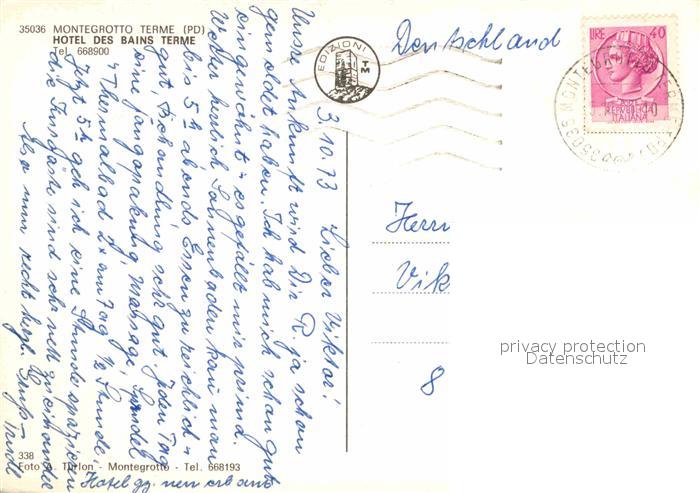 35036 MONTEGROTTO TERME (PD)
HOTEL DES BAINS TERME
Tel. 668900
3.10.73 Lieber Viktor!
Unsre Ankunft wird Dir R ja schon
gemeldet haben. Ich hab mich schon gut
eingewöhnt u. es gefällt mir prima.
Wetter herrlich Sonnenbaden kann man
bis 5h abends Essen zu reichlich u
gut, Behandlung sehr gut. Jeden Tag
eine Fangopackung, Massage, Sprudel
u Thermalbad 2x am Tag ½ Stunde,
Jetzt 5h geh ich eine Stunde spazieren
die Kurgäste sind sehr nett zueinander
Also nun recht herzl. Gruß -
Trudl
Hotel gz. neu erbaut
338
Foto A. Turlon - Montegrotto - Tel. 668193
EDIZIONI
TM
Deutschland
LIRE 40
POSTE
REPUBBLICA
ITALIANA
MONTEGROTTO TERME
35036
Herrn
Vik
8
privacy protection
Datenschutz